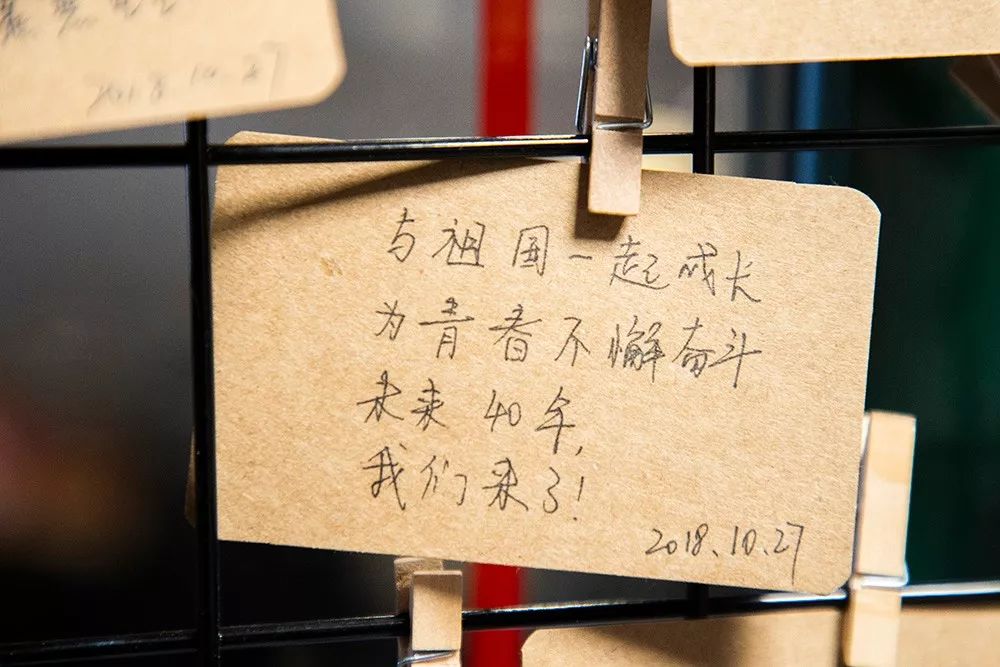 2018.10.27
与祖国一起成长
为青春不懈奋斗
未来40年,
我们来了!
2018.10.27